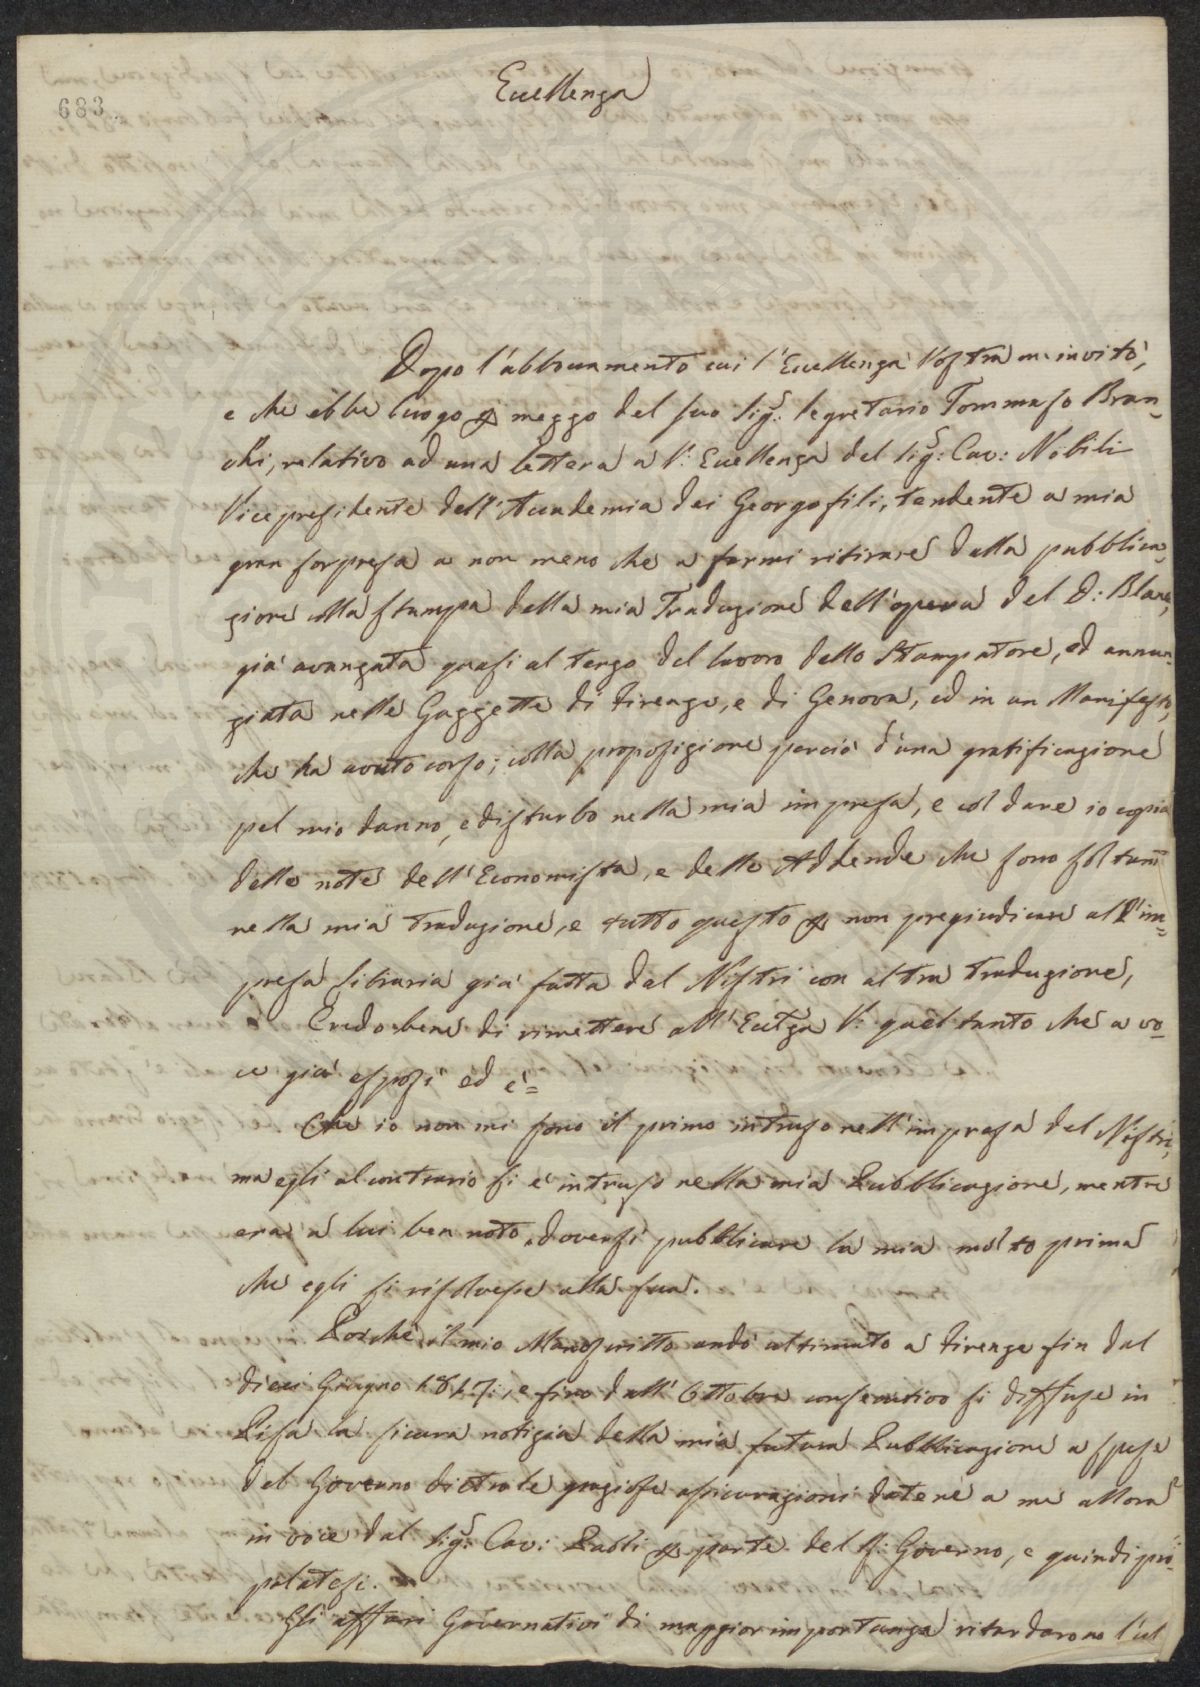 683
Eccellenza
Dopo l'abboccamento cui l'Eccellenza Vostra m'invitò,
e che ebbe luogo p mezzo del suo Sig.r Segretario Tommaso Bran=
chi, relativo ad una lettera a V: Eccellenza del Sig.r: Cav: Nobili
Vicepresidente dell'Accademia dei Georgofili, tendente a mia
gran sorpresa a non meno che a farmi ritirare dalla pubblica=
zione colla stampa della mia Traduzione dell'opera del D: Blanc,
già avanzata quasi al terzo del lavoro dello Stampatore, ed annun=
ziata nelle Gazzette di Firenze, e di Genova, ed in un Manifesto,
che ha avuto corso; colla proposizione perciò d'una gratificazione
pel mio danno, e disturbo nella mia impresa, e col dare io copia
delle note dell'Economista, e delle Addende che sono soltanto
nella mia Traduzione, e tutto questo p non pregiudicare all'im=
presa libraria già fatta dal Nistri con altra Traduzione,
Credo bene di rimettere all'Ecc.za V: quel tanto che a vo=
ce già esposi ed è=
Che io non mi sono il primo intruso nell'impresa del Nistri,
ma egli al contrario si è intruso nella mia Pubblicazione, mentre
era a lui ben noto, doversi pubblicare la mia molto prima
che egli si risolvesse alla sua.
Poiché il mio Manoscritto andò ultimato a Firenze fin dal
dieci Giugno 1847:, e fino dall'Ottobre consecutivo si diffuse in
Pisa la sicura notizia della mia futura Pubblicazione a spese
del Governo dietro le graziose assicurazioni datene a me allora
in voce dal Sig.r: Cav: Pabli p parte del S: Governo, e quindi pro=
palatesi.
Gli affari Governativi di maggior importanza ritardarono l'ul